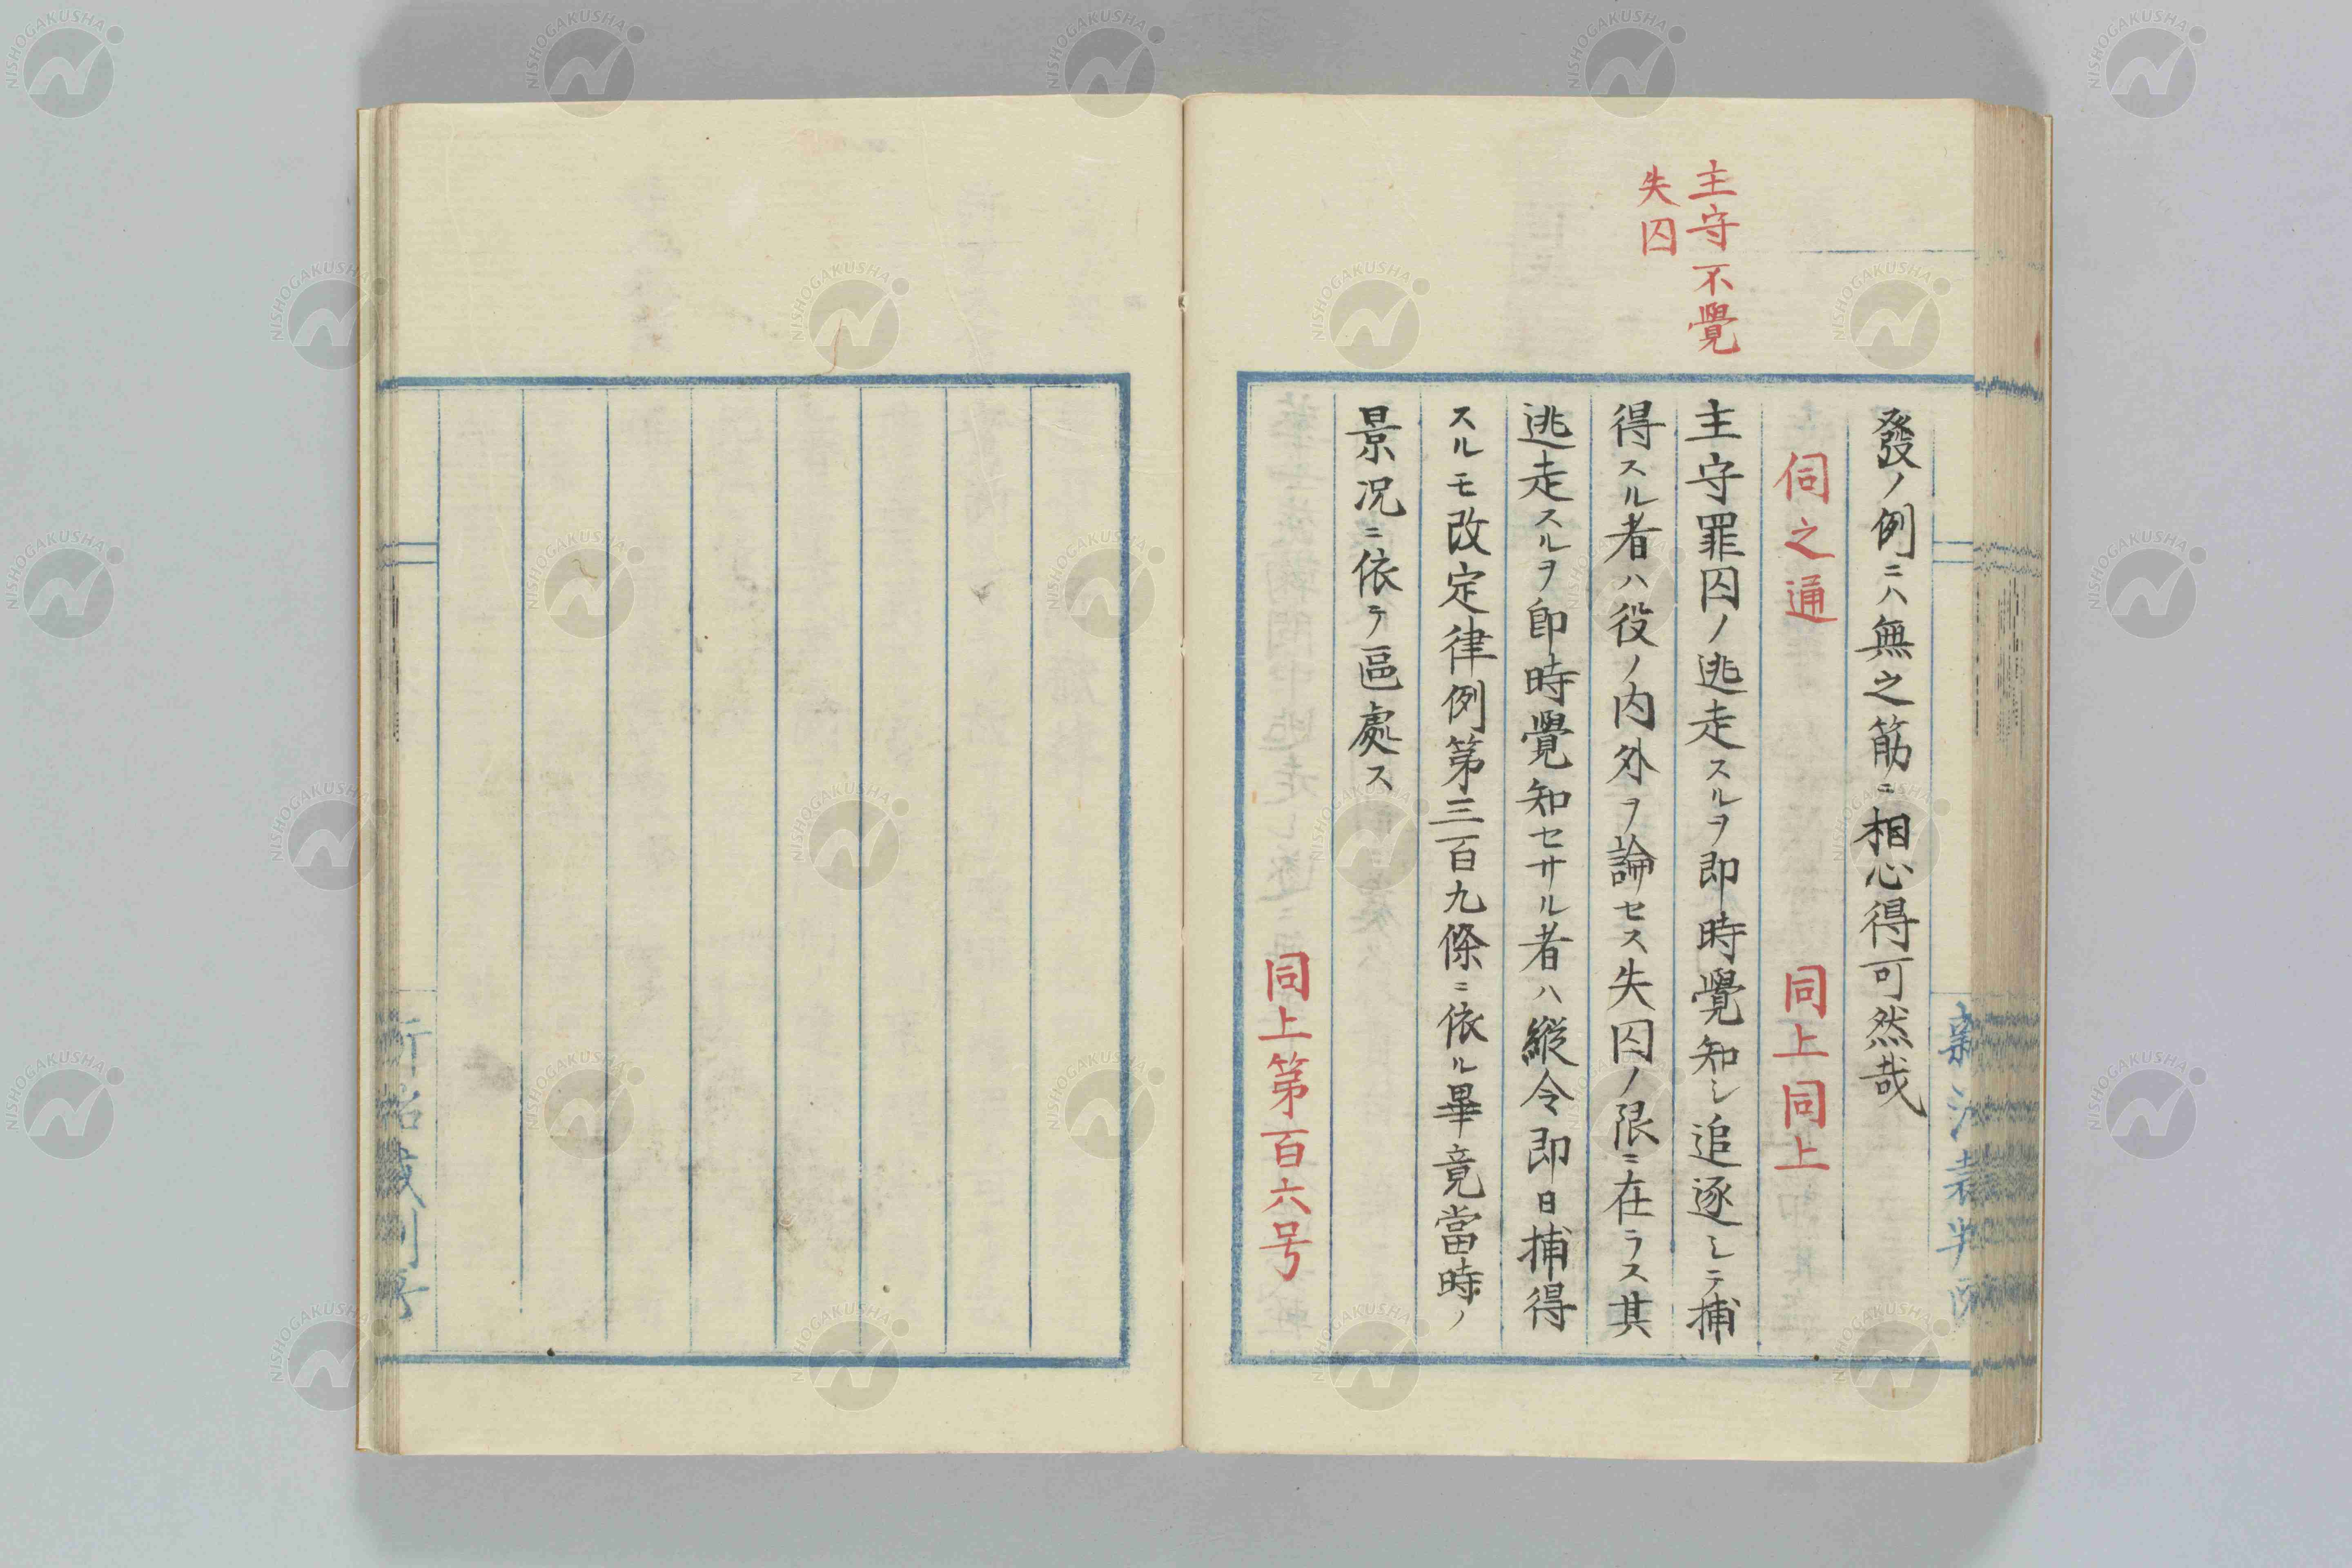 主守不覺
失囚
發ノ例ニハ無之筋ニ相心得可然哉
伺之通 同上同上
主守罪囚ノ逃走スルヲ即時覺知シ追逐シテ捕
得スル者ハ役ノ内外ヲ論セス失囚ノ限ニ在ラス其
逃走スルヲ即時覺知セサル者ハ縱令即日捕得
スルモ改定律例第三百九條ニ依ル畢竟當時ノ
景況ニ依テ區處ス
同上第百六号
NISHOGAKUSHA